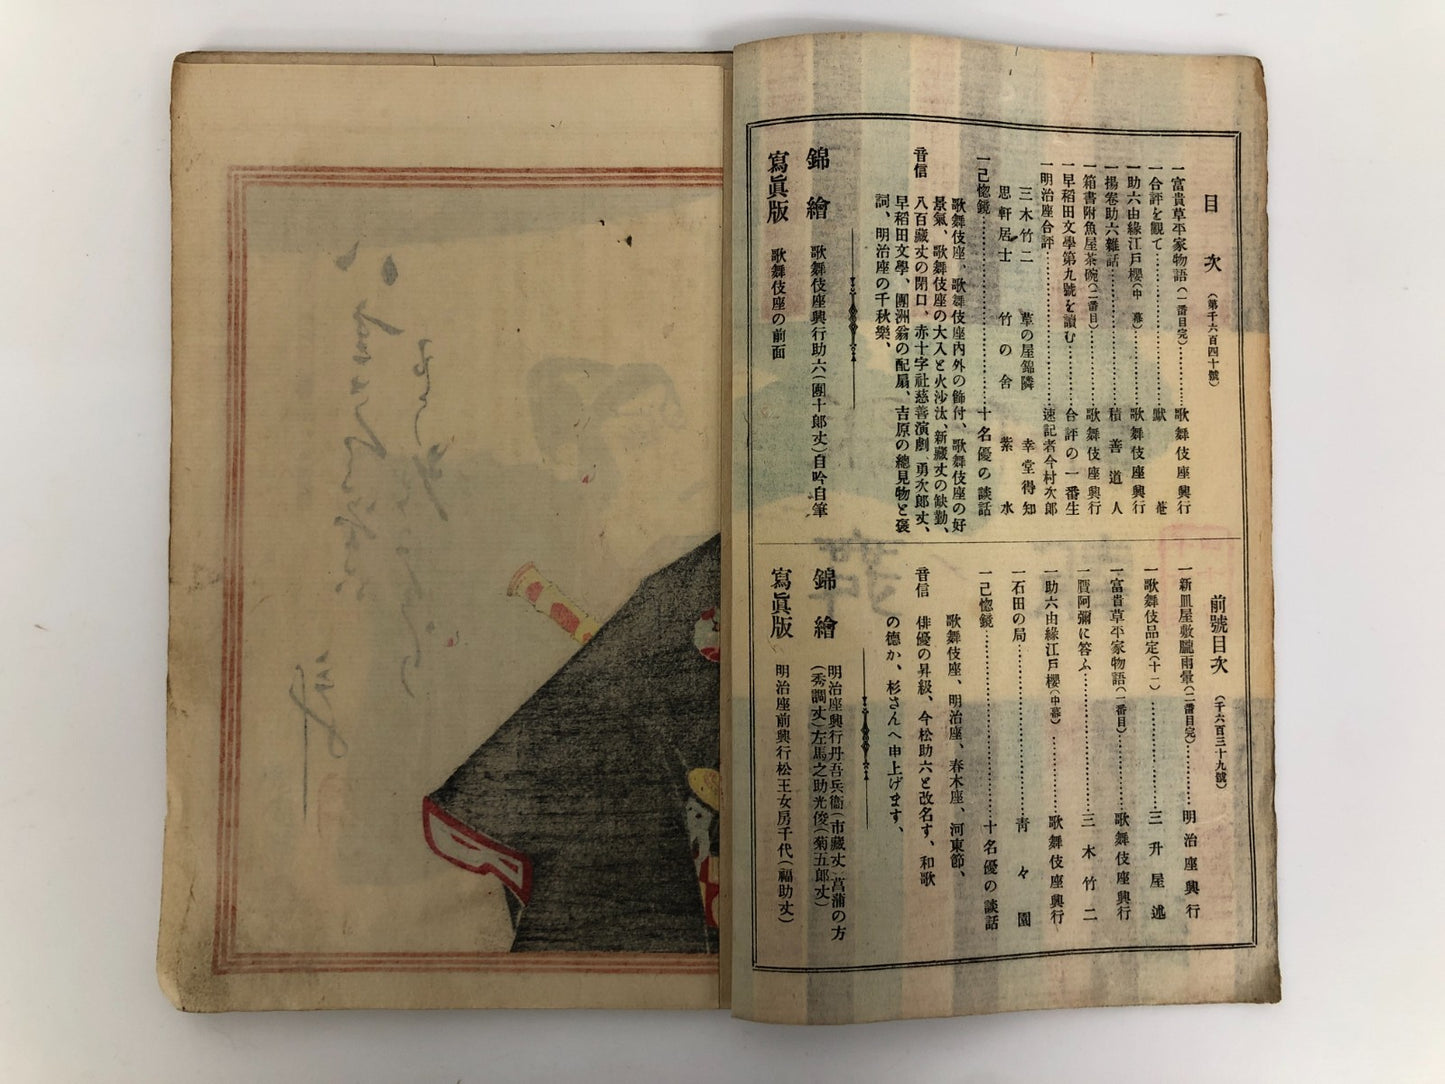 目次（第千六百四十號）
一富貴草平家物語（一番目完）…………歌舞伎座興行
一合評を観て…………獣菴
一助六由緣江戸櫻（中幕）…………歌舞伎座興行
一揚卷助六雜話…………積善道人
一箱書附魚屋茶碗（二番目）…………歌舞伎座興行
一早稻田文學第九號を讀む…………合評の一番生
一明治座合評…………速記者今村次郎
三木竹二　草の屋錦隣　幸堂得知
思軒居士　竹の舍　紫水
一己惚鏡…………十名優の談話
歌舞伎座、歌舞伎座內外の飾付、歌舞伎座の好
景氣、歌舞伎座の大入と火沙汰、新藏丈の缺勤、
音信　八百藏丈の閉口、赤十字社慈善演劇、勇次郎丈、
早稻田文學、團洲翁の配扇、吉原の總見物と褒
詞、明治座の千秋樂、
錦繪　歌舞伎座興行助六（團十郎丈）自吟自筆
寫眞版　歌舞伎座の前面
前號目次（千六百三十九號）
一新皿屋敷朧雨暈（二番目完）…………明治座興行
一歌舞伎品定（十一）…………三升屋述
一富貴草平家物語（一番目）…………歌舞伎座興行
一贋阿彌に答ふ…………三木竹二
一助六由緣江戸櫻（中幕）…………歌舞伎座興行
一石田の局…………靑々園
一己惚鏡…………十名優の談話
歌舞伎座、明治座、春木座、河東節、
音信　俳優の昇級、今松助六と改名す、和歌
の德か、杉さんへ申上げます、
錦繪　明治座興行丹吾兵衞（市藏丈）菖蒲の方
（秀調丈）左馬之助光俊（菊五郎丈）
寫眞版　明治座前興行松王女房千代（福助丈）